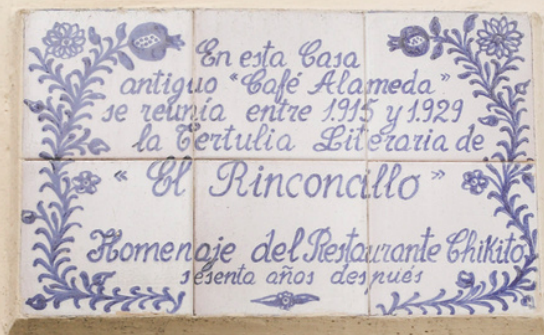 En esta Casa
antiguo "Café Alameda"
se reunía entre 1.915 y 1.929
la Tertulia Literaria de
"El Rinconcillo"
Homenaje del Restaurante Chikito
sesenta años después